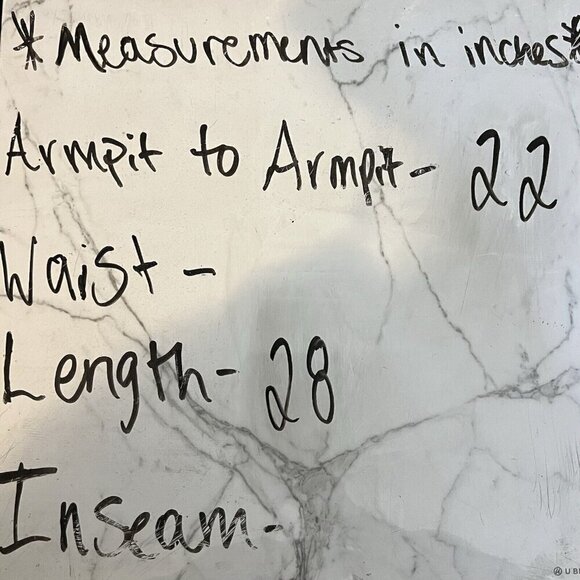 *Measurements in inches*
Armpit to Armpit- 22
Waist -
Length- 28
Inseam-